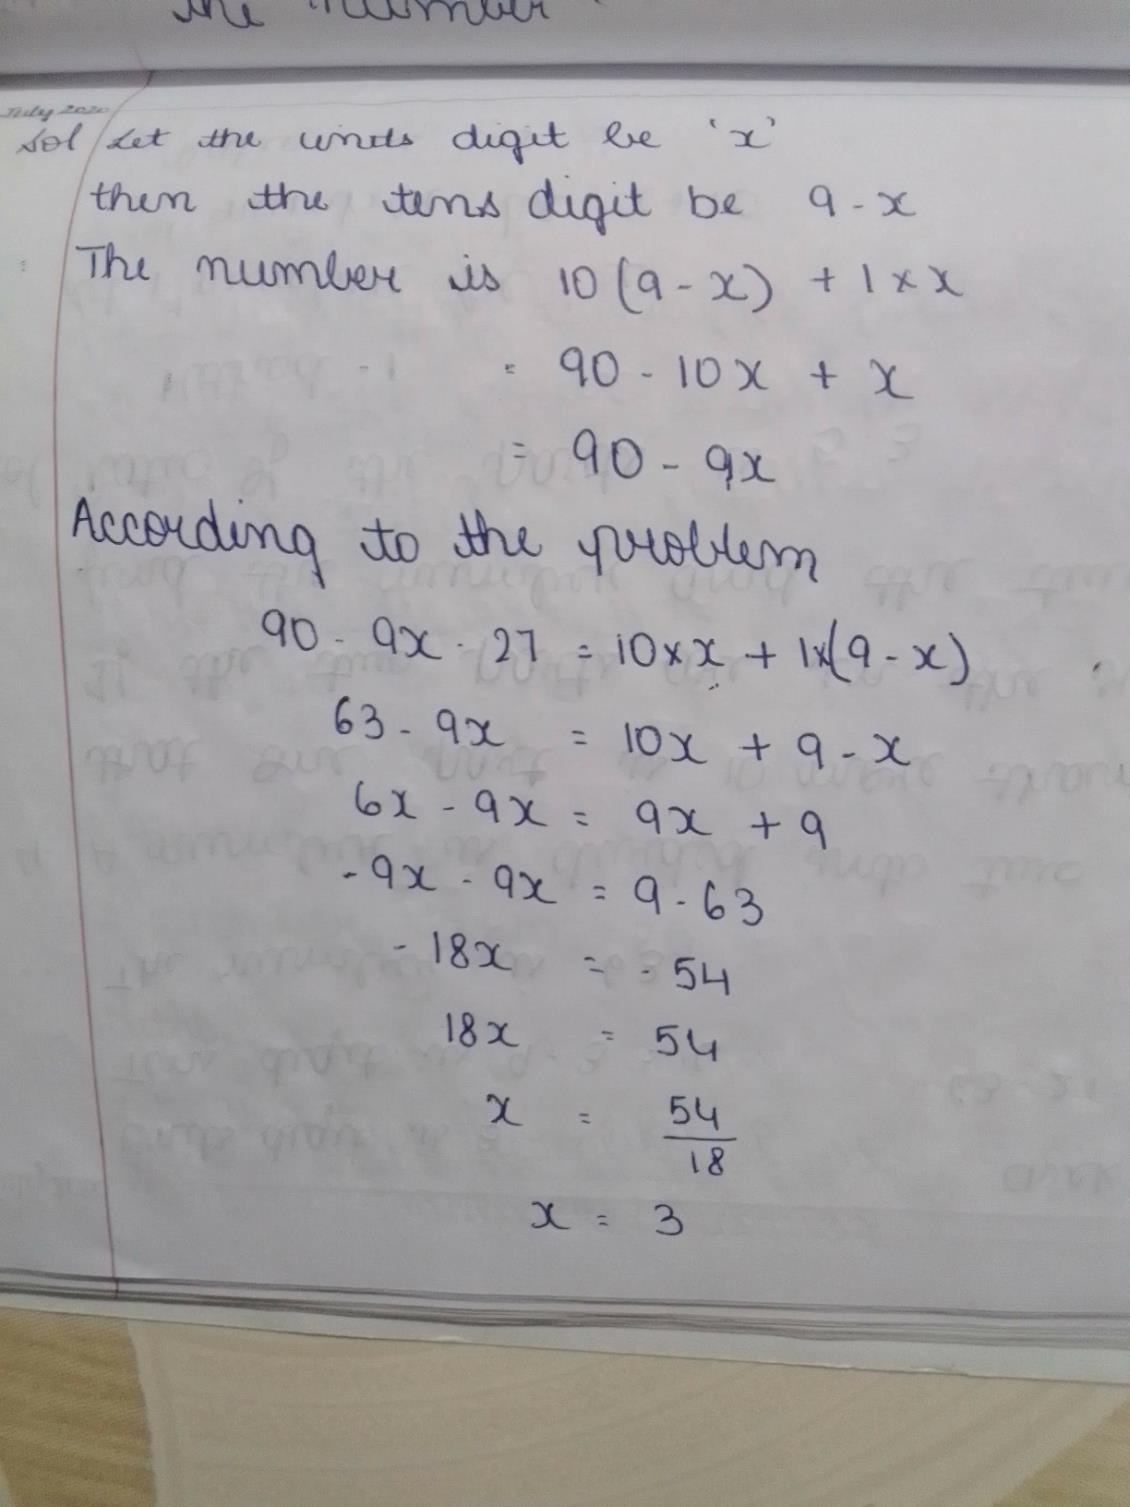 the number
July 2020
Sol Let the units digit be 'x'
then the tens digit be 9-x
The number is 10(9-x) + 1×x
= 90 - 10x + x
= 90 - 9x
According to the problem
90 - 9x - 27 = 10×x + 1×(9-x)
63 - 9x = 10x + 9 - x
6x - 9x = 9x + 9
-9x - 9x = 9 - 63
-18x = -54
18x = 54
x = 54/18
x = 3